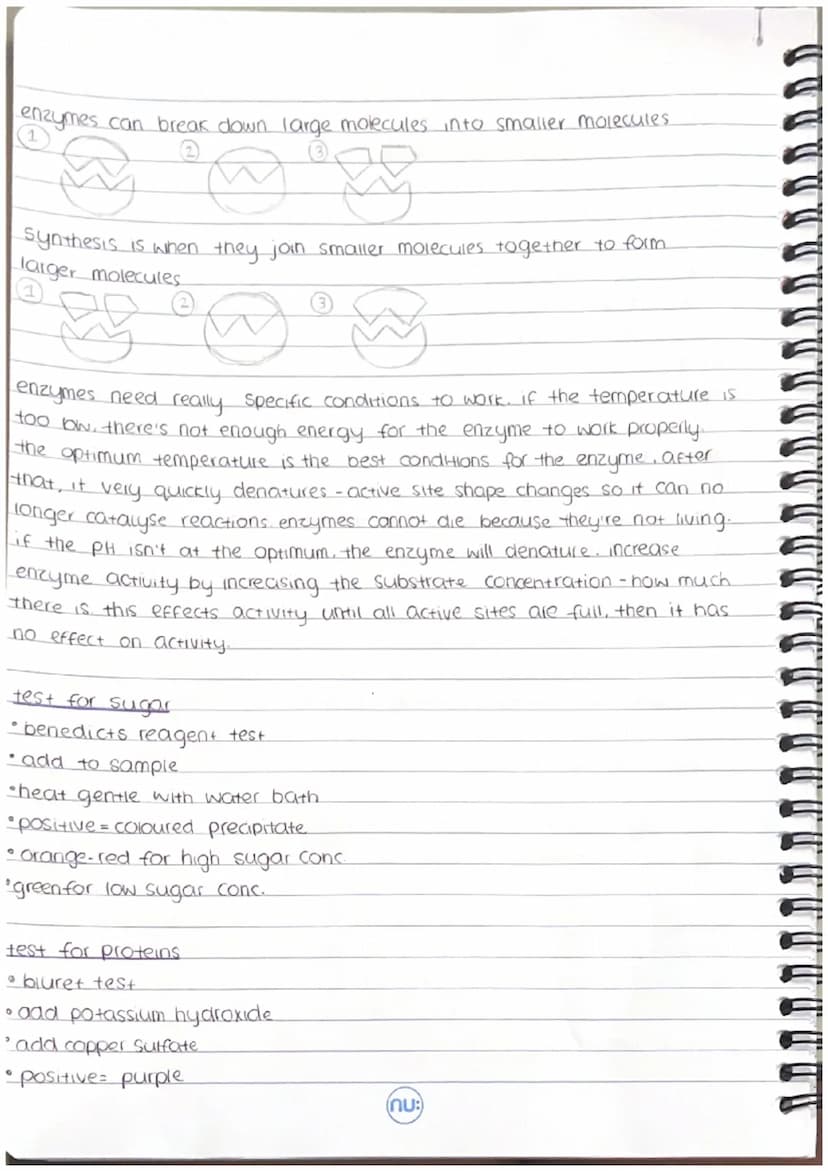 enzymes can break down large molecules into smaller molecules
1 2 3
synthesis is when they join smaller molecules together to form
larger molecules
1 2 3
enzymes need really specific conditions to work. if the temperature is
too low, there's not enough energy for the enzyme to work properly.
the optimum temperature is the best conditions for the enzyme. after
that, it very quickly denatures - active site shape changes so it can no
longer catalyse reactions. enzymes cannot die because they're not living.
if the pH isn't at the optimum, the enzyme will denature. increase
enzyme activity by increasing the substrate concentration - how much
there is this effects activity until all active sites are full, then it has
no effect on activity.
test for sugar
• benedicts reagent test
• add to sample
• heat gentle with water bath
• positive = coloured precipitate
• orange-red for high sugar conc.
• green for low sugar conc.
test for proteins
• biuret test
• add potassium hydroxide
• add copper sulfate
• positive = purple
nu: